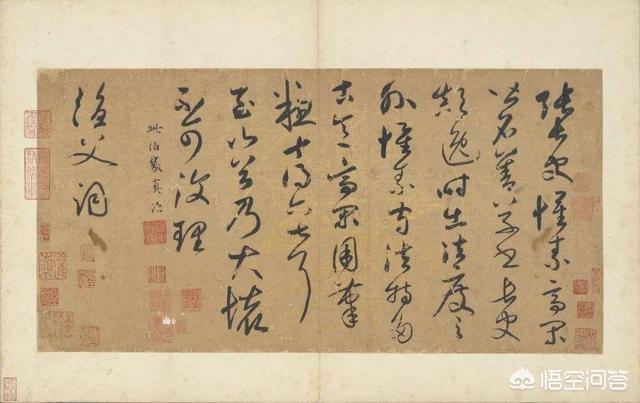 張長史懷素高閑
皆名善草書長史
顛逸時出法度之
外懷素守法特多
古意高閑用筆
粗十得六七耳
至山谷乃大壞
不可復理
此伯幾真跡
漁父詞
悟空问答